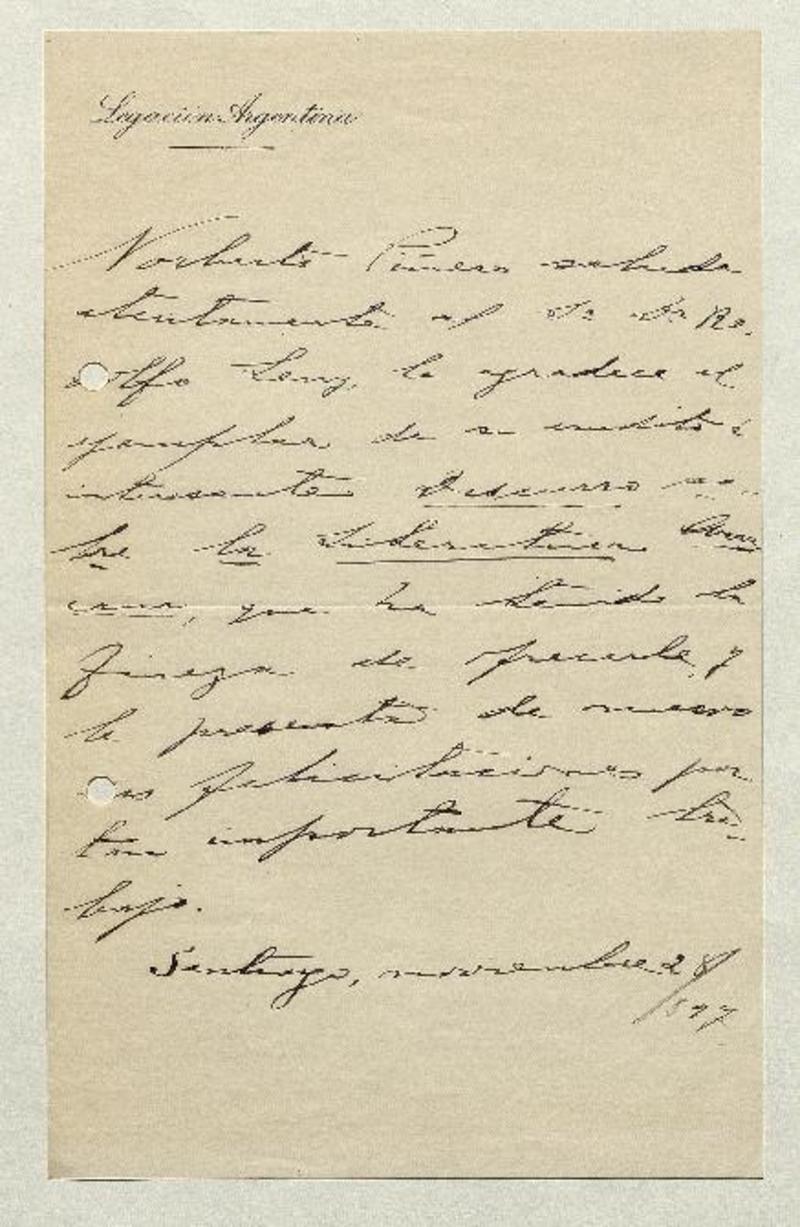 Legación Argentina
Norberto Piñero saluda
atentamente al Dr. Ro-
dolfo Lenz, le agradece el
ejemplar de su erudito é
interesante Discurso so-
bre la Literatura Arau-
cana, que ha tenido la
fineza de ofrecerle, y
le presenta de nuevo
sus felicitaciones por
tan importante tra-
bajo.
Santiago, noviembre 28/897